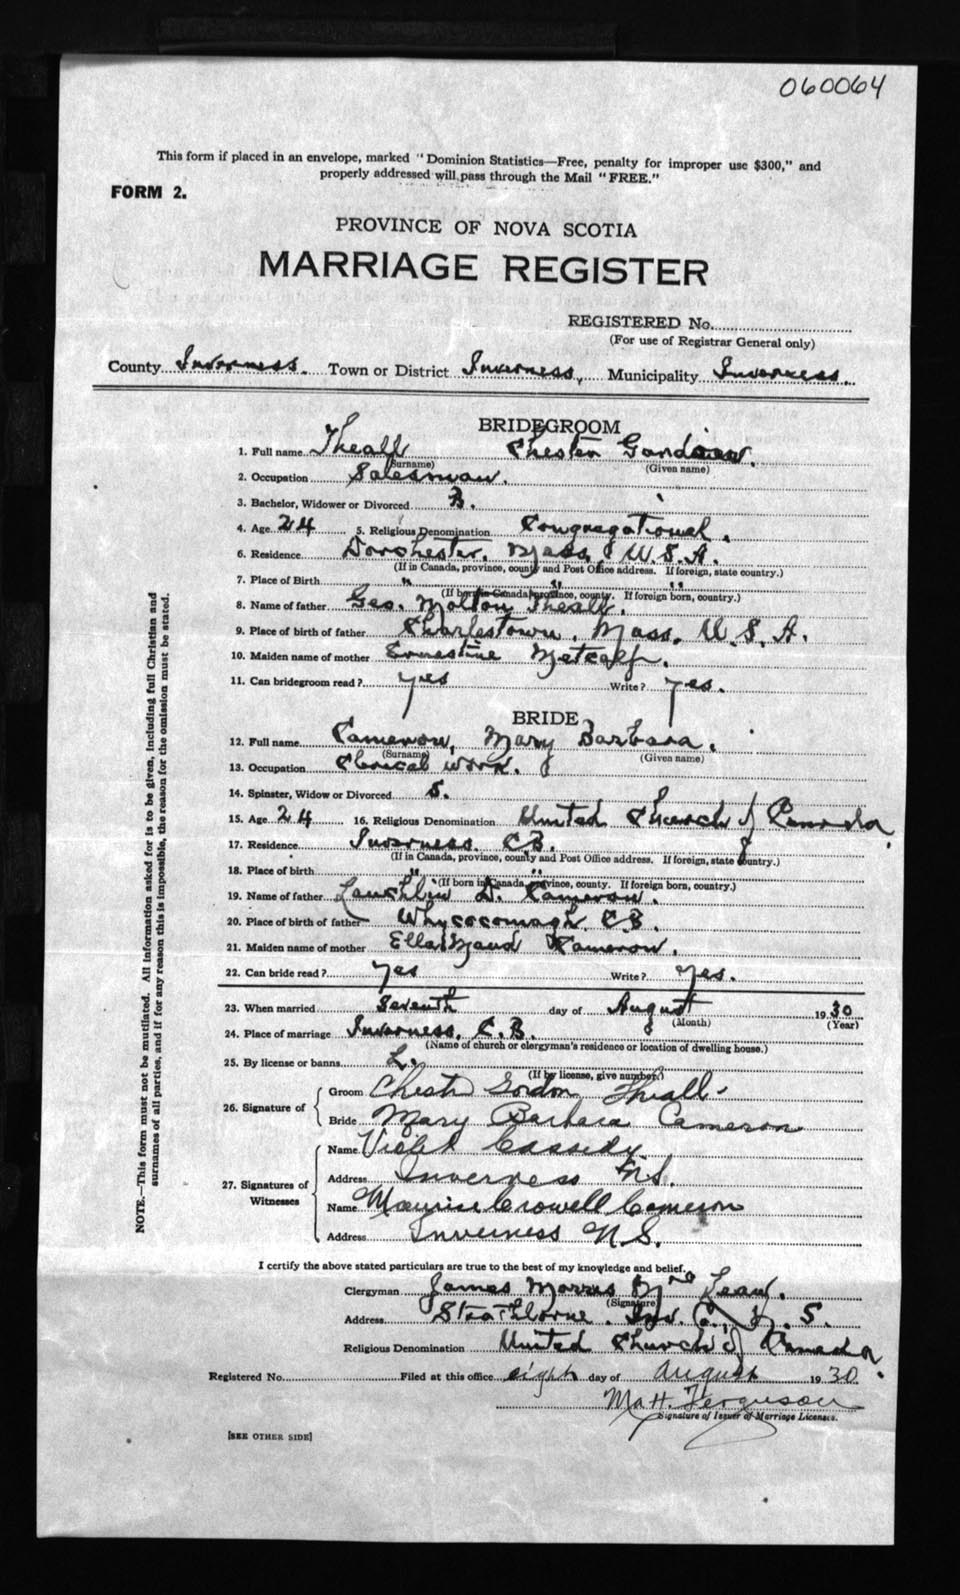 060064
This form if placed in an envelope, marked "Dominion Statistics—Free, penalty for improper use $300," and
properly addressed will pass through the Mail "FREE."
FORM 2.
PROVINCE OF NOVA SCOTIA
MARRIAGE REGISTER
REGISTERED No.
(For use of Registrar General only)
County Inverness. Town or District Inverness, Municipality Inverness.
BRIDEGROOM
1. Full name Theall Chester
(Surname) (Given name)
2. Occupation Salesman.
3. Bachelor, Widower or Divorced B.
4. Age 24 5. Religious Denomination Congregational.
6. Residence Dorchester, Mass, U.S.A.
(If in Canada, province, county and Post Office address. If foreign, state country.)
7. Place of Birth " " "
(If born in Canada, province, county. If foreign born, country.)
8. Name of father Geo. Molton Theall.
9. Place of birth of father Charlestown, Mass. U.S.A.
10. Maiden name of mother Ernestine Metcalf.
11. Can bridegroom read? yes Write? yes.
BRIDE
12. Full name Cameron, Mary Barbara.
(Surname) (Given name)
13. Occupation Clerical work.
14. Spinster, Widow or Divorced S.
15. Age 24 16. Religious Denomination United Church of Canada
17. Residence Inverness, C.B.
(If in Canada, province, county and Post Office address. If foreign, state country.)
18. Place of birth " "
(If born in Canada, province, county. If foreign born, country.)
19. Name of father Lauchlin D. Cameron.
20. Place of birth of father Whycocomagh, C.B.
21. Maiden name of mother Ella Maud Cameron.
22. Can bride read? yes Write? yes.
23. When married seventh day of August 1930
(Month) (Year)
24. Place of marriage Inverness, C.B.
(Name of church or clergyman's residence or location of dwelling house.)
25. By license or banns L.
(If by license, give number.)
26. Signature of
Groom Chester Gordon Theall
Bride Mary Barbara Cameron
27. Signatures of Witnesses
Name Violet Cassidy.
Address Inverness N.S.
Name Crowell Cameron
Address Inverness N.S.
I certify the above stated particulars are true to the best of my knowledge and belief.
Clergyman James Morris McLean.
(Signature)
Address Strathlorne. Inv. Co., N.S.
Religious Denomination United Church of Canada.
Registered No. Filed at this office eighth day of August 1930
Ma H. Ferguson
Signature of Issuer of Marriage Licenses.
[SEE OTHER SIDE]
NOTE.—This form must not be mutilated. All information asked for is to be given, including full Christian and
surnames of all parties, and if for any reason this is impossible, the reason for the omission must be stated.